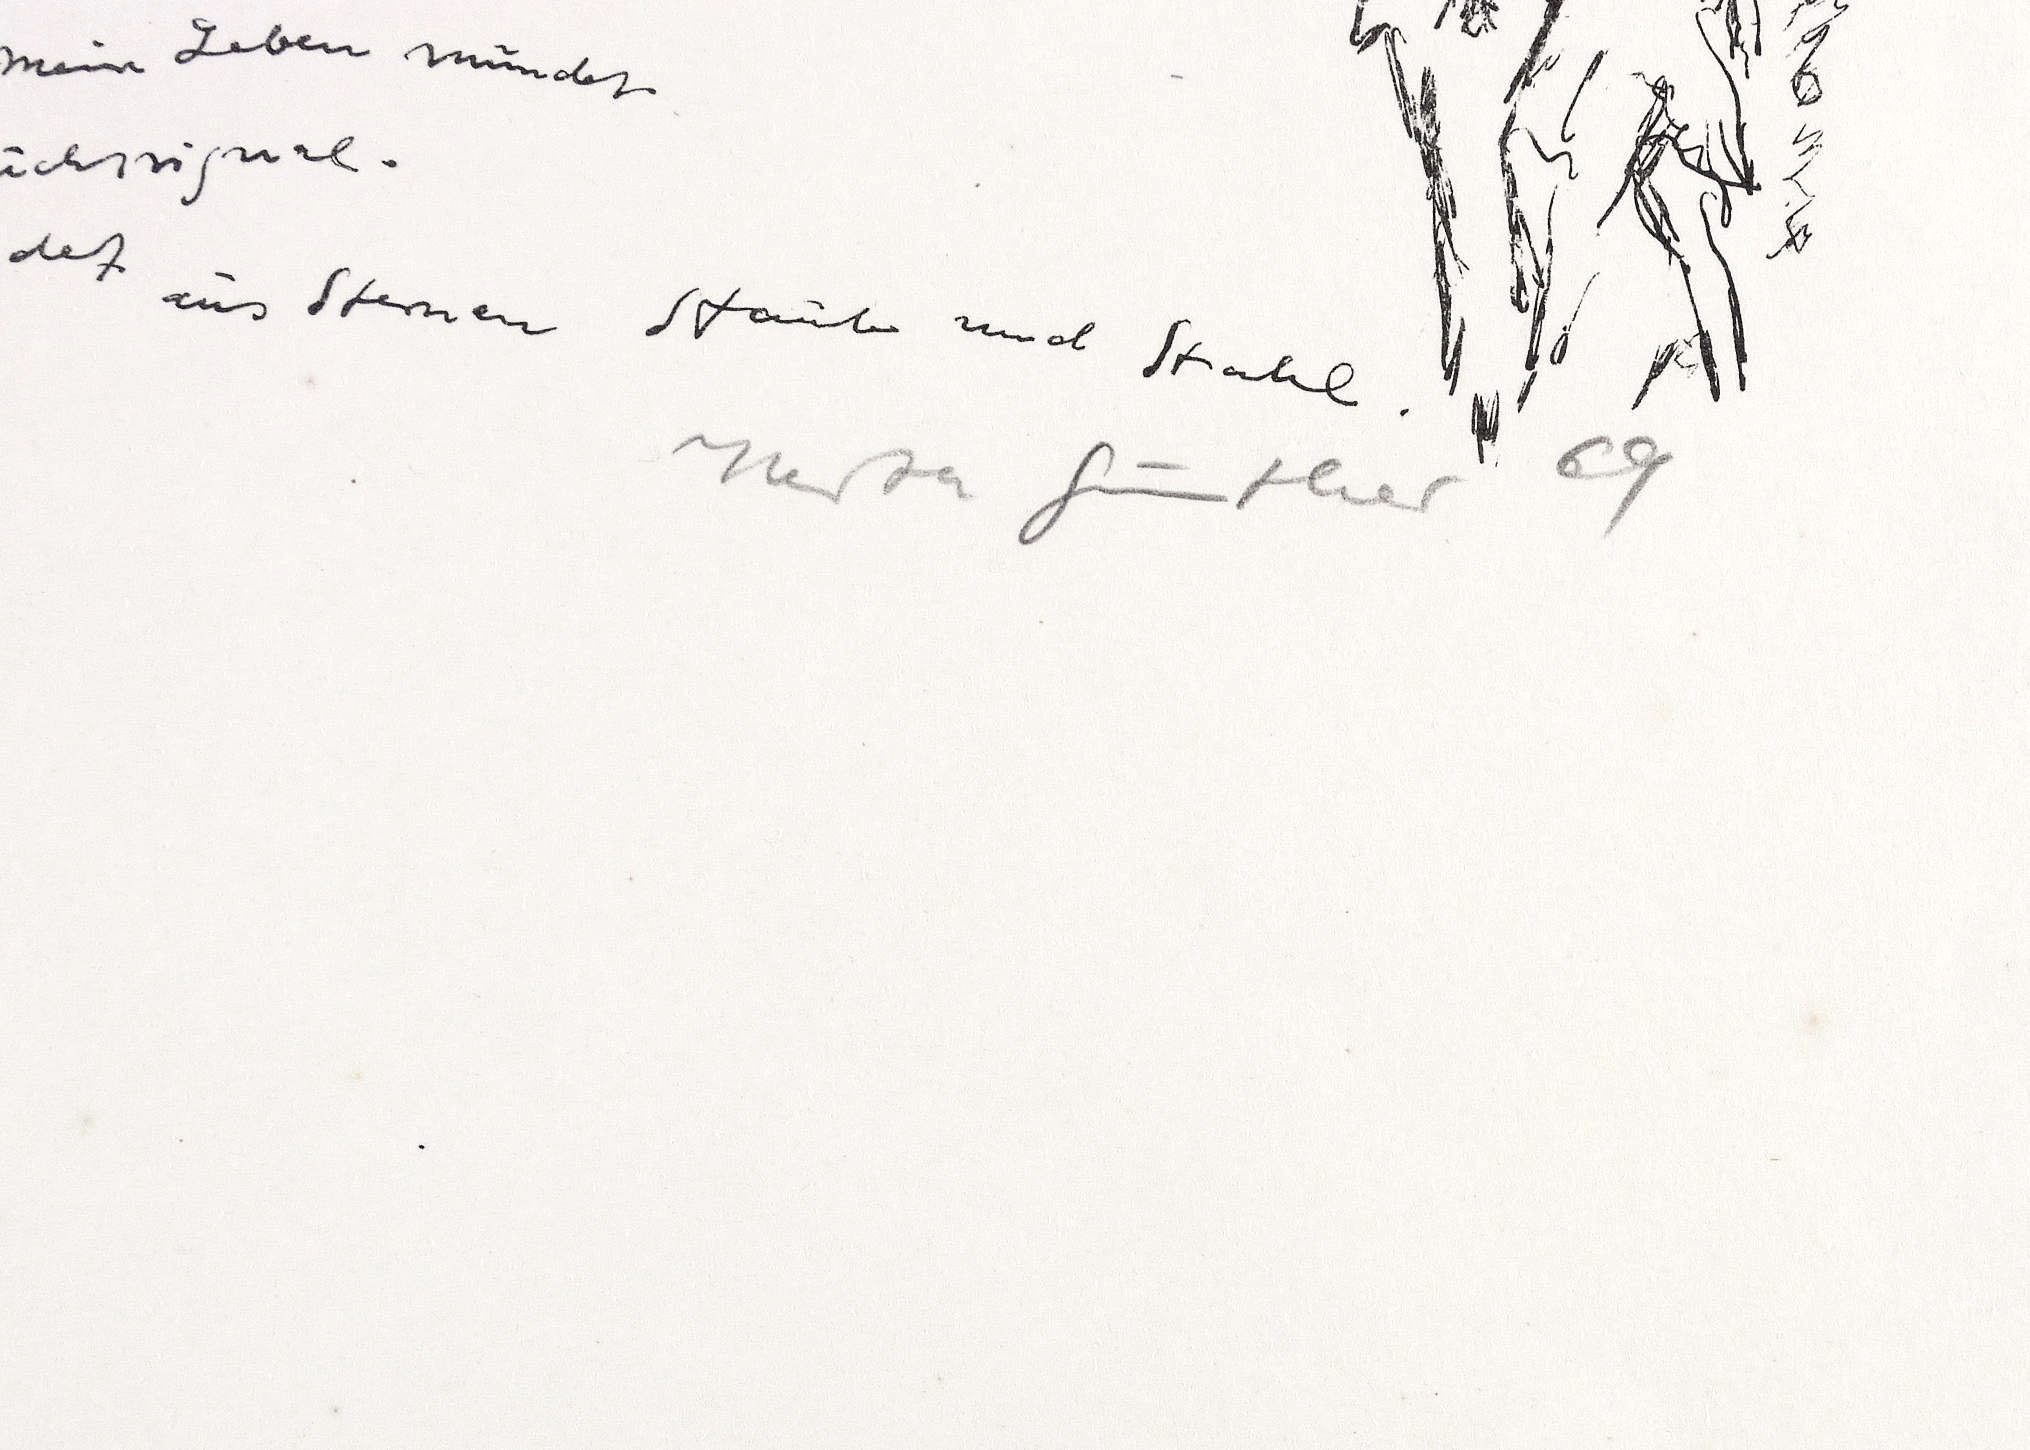 mein Leben mündet
ücksignal.
det
aus Sternen Staub und Stahl.
Herta Günther 69